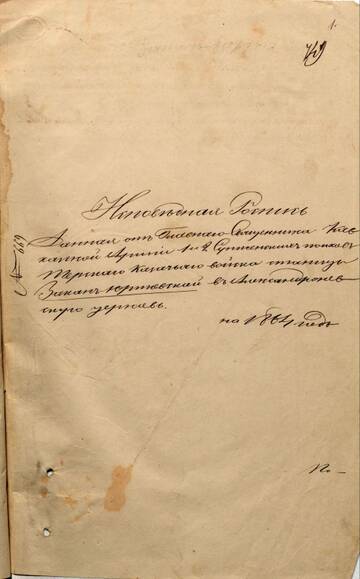 1.
749
Исповѣдная Роспись
Данная отъ Главнаго Священника Кав
казской Арміи 1 и 2 Сунженскихъ полковъ
Терскаго Казачьяго войска станицы
Законъ юртовской въ Александровс
скую церковь.
на 1864 годъ
№ 669